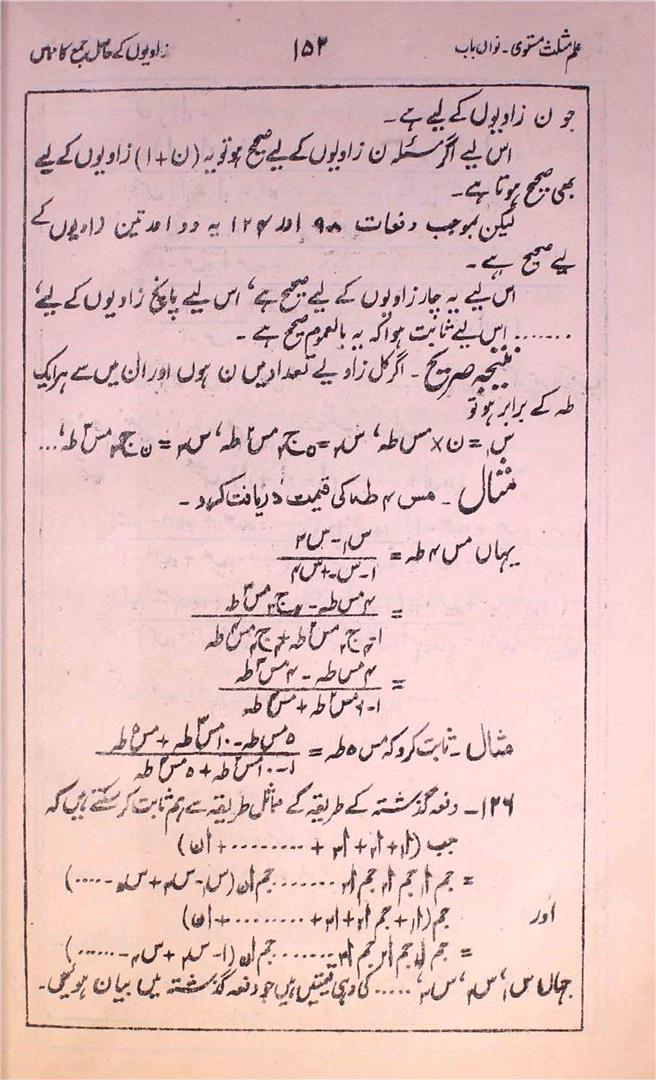 علم مثلث مستوی۔ نواں باب ۱۵۳ زاویوں کے حاصل جمع کا مماس
جو ن زاویوں کے لیے ہے۔
اس لیے اگر مسئلہ ن زاویوں کے لیے صحیح ہو تو یہ (ن+۱) زاویوں کے لیے
بھی صحیح ہوتا ہے۔
لیکن بموجب دفعات ۹۸ اور ۱۲۴ یہ دو اور تین زاویوں کے
لیے صحیح ہے۔
اس لیے یہ چار زاویوں کے لیے صحیح ہے، اس لیے پانچ زاویوں کے لیے،
...... اس لیے ثابت ہوا کہ یہ بالعموم صحیح ہے۔
نتیجہ صریح۔ اگر کل زاویے تعداد میں ن ہوں اور ان میں سے ہر ایک
طہ کے برابر ہو تو
س۱ = ن × مس طہ، س۲ = نج۲ مس۲ طہ، س۳ = نج۳ مس۳ طہ، ...
مثال۔ مس ۴ طہ کی قیمت دریافت کرو۔
یہاں مس ۴ طہ = (س۱ - س۳) / (۱ - س۲ + س۴)
= (۴ مس طہ - ۴ج۳ مس۳ طہ) / (۱ - ۴ج۲ مس۲ طہ + ۴ج۴ مس۴ طہ)
= (۴ مس طہ - ۴ مس۳ طہ) / (۱ - ۶ مس۲ طہ + مس۴ طہ)
مثال۔ ثابت کرو کہ مس ۵ طہ = (۵ مس طہ - ۱۰ مس۳ طہ + مس۵ طہ) / (۱ - ۱۰ مس۲ طہ + ۵ مس۴ طہ)
۱۲۶۔ دفعہ گذشتہ کے طریقہ کے مماثل طریقہ سے ہم ثابت کر سکتے ہیں کہ
جب (ا۱ + ا۲ + ا۳ + ........ + ان)
= جم ا۱ جم ا۲ جم ا۳ ....... جم ان (س۱ - س۳ + س۵ - .....)
اور جم (ا۱ + ا۲ + ا۳ + ........ + ان)
= جم ا۱ جم ا۲ جم ا۳ ....... جم ان (۱ - س۲ + س۴ - ......)
جہاں س۱، س۲، س۳، ..... کی وہی قیمتیں ہیں جو دفعہ گذشتہ میں بیان ہوئیں۔